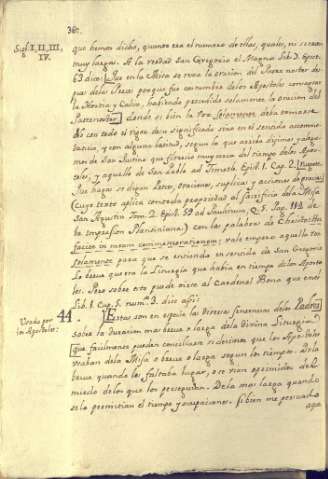 38.
Sigl. I, II, III, IV.
que hemos dicho, quanto era el numero de ellas, quales, ni si eran
muy largas. A la verdad San Gregorio el Magno Lib. 7. Epist.
63 dice: Que en la Misa se reza la oracion del Pater noster des-
pues de la Prece porque fue costumbre de los Apostoles consagrar
la Hostia y Caliz, habiendo precedido solamente la oracion del
Paternoster donde si bien la voz Solamente deba tomarse
No con todo el rigor de su significado sino en el sentido acomo-
daticio, y con alguna latitud, segun lo que arriba diximos, y habla-
mos de San Justino que florecio muy cerca del tiempo de los Apos-
toles, y aquello de San Pablo ad Timoth. Epist. 1. Cap. 2.
que hagas se digan preces, oraciones, suplicas y acciones de gracia
(cuyo texto aplica con toda propiedad al sacrificio de la Misa
San Agustin Tom. 2. Epist. 59 ad Paulinum, Q. 5. Pag. 114 de
la impresion Plantiniana) con las palabras de Christo: Hoc
facite in meam commemorationem: vale empero aquella voz
Solamente para que se entienda en sentido de San Gregorio
lo breve que era la Liturgia que habia en tiempo de los Aposto-
les. Pero sobre esto puede verse al Cardenal Bona que en el
Lib. 1. Cap. 5. num. 3. dice asi:
Estas son en especie las diversas sentencias de los Padres
44
sobre la duracion mas breve o larga de la Divina Liturgia
que facilmente pueden conciliarse si decimos que los Apostoles
usaban de la Misa o breve o larga segun los tiempos. De la
breve quando les faltaba lugar, o se vian oprimidos del
miedo de los que los perseguian. De la mas larga quando
se lo permitian el tiempo y ocupaciones. Si bien me persuado